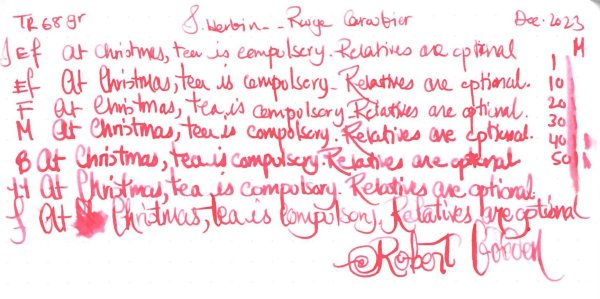 TR 68gr J. Herbin - - Rouge Caroubier Dec. 2023
J EF at Christmas, tea is compulsory. Relatives are optional M
EF At Christmas, tea is compulsory. Relatives are optional. 1
F at Christmas, tea is compulsory. Relatives are optional. 10
M At Christmas, tea is compulsory. Relatives are optional. 20
B At Christmas, tea is compulsory. Relatives are optional 30
At Christmas, tea is compulsory. Relatives are optional. 40
At Christmas, tea is compulsory. Relatives are optional 50
Robert